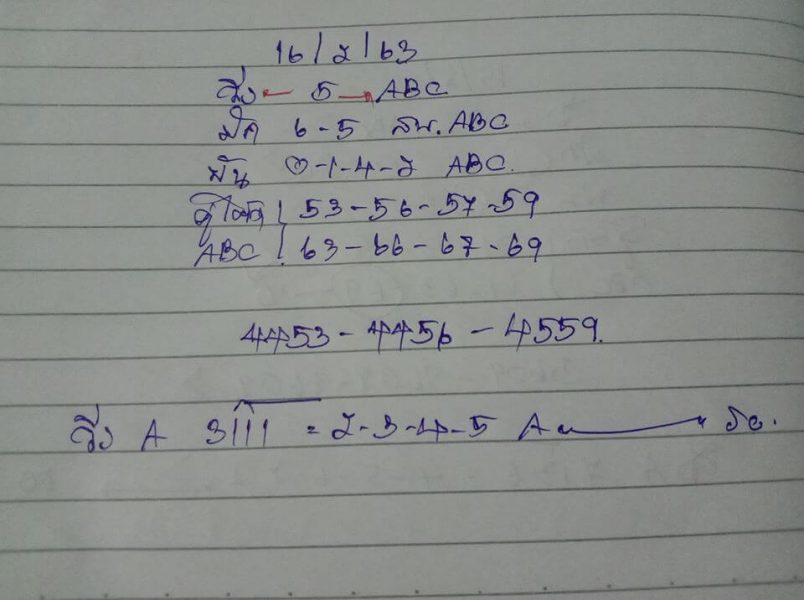 16/2/63
วิ่ง - 5 → ABC
มัด 6-5 ลน. ABC
พัน 0-1-4-2 ABC.
คู่โต๊ด | 53-56-57-59
ABC | 63-66-67-69
4453-4456-4559.
วิ่ง A 3111 = 2-3-4-5 A →